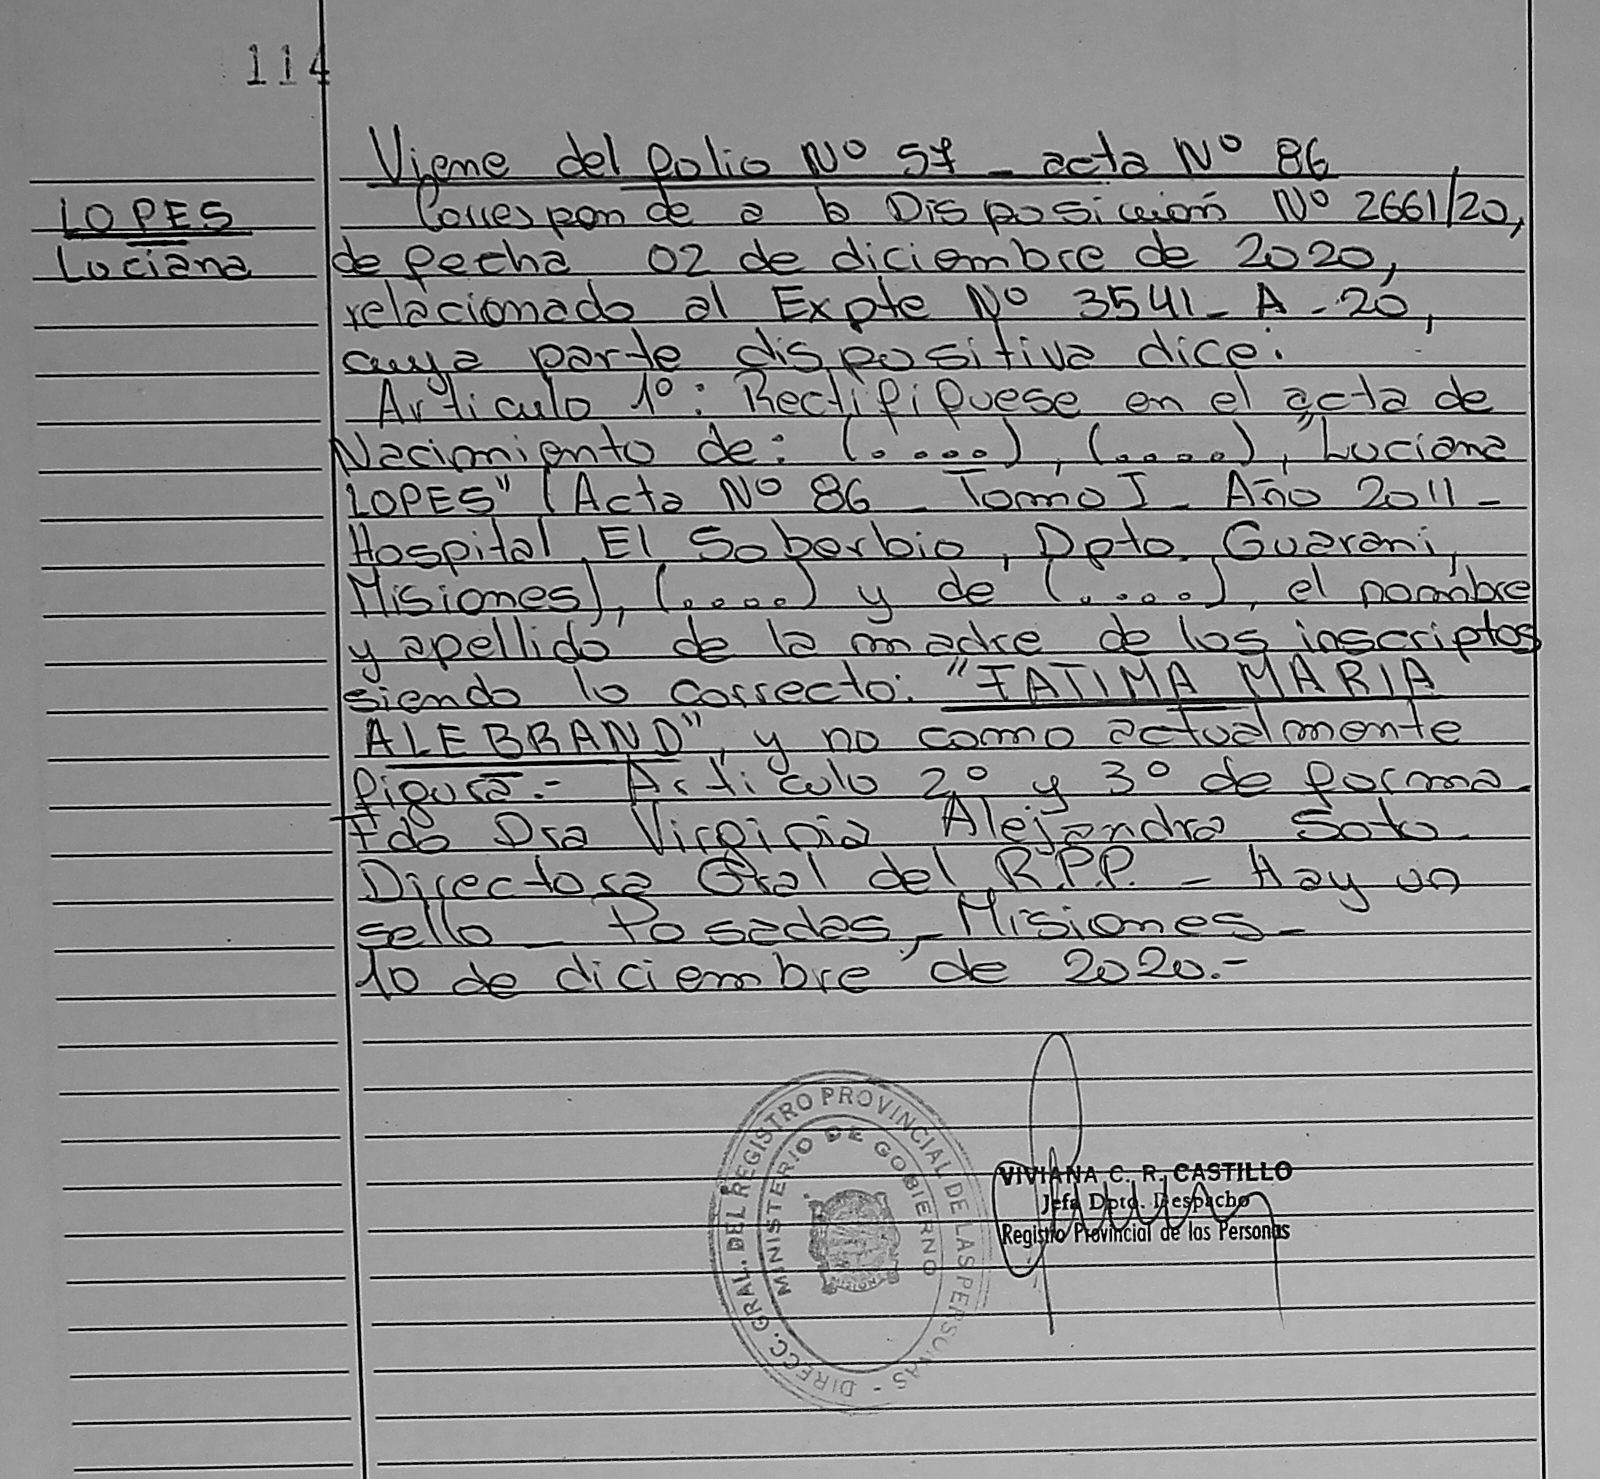 114
Viene del folio Nº 57 - acta Nº 86
LOPES
Luciana
Corresponde a la Disposición Nº 2661/20,
de fecha 02 de diciembre de 2020,
relacionado al Expte Nº 3541 - A - 20,
cuya parte dispositiva dice:
Articulo 1º: Rectifiquese en el acta de
Nacimiento de: (....), (....), "Luciana
LOPES" (Acta Nº 86 - Tomo I - Año 2011 -
Hospital El Soberbio, Dpto. Guarani,
Misiones), (....) y de (....), el nombre
y apellido de la madre de los inscriptos
siendo lo correcto: "FATIMA MARIA
ALEBRAND", y no como actualmente
figura.- Articulo 2º y 3º de forma
Fdo Dra Virginia Alejandra Soto
Directora Gral del R.P.P. - Hay un
sello - Posadas, Misiones -
10 de diciembre de 2020.-
DIRECC. GRAL. DEL REGISTRO PROVINCIAL DE LAS PERSONAS -
MINISTERIO DE GOBIERNO
VIVIANA C. R. CASTILLO
Jefa Dpto. Despacho
Registro Provincial de las Personas